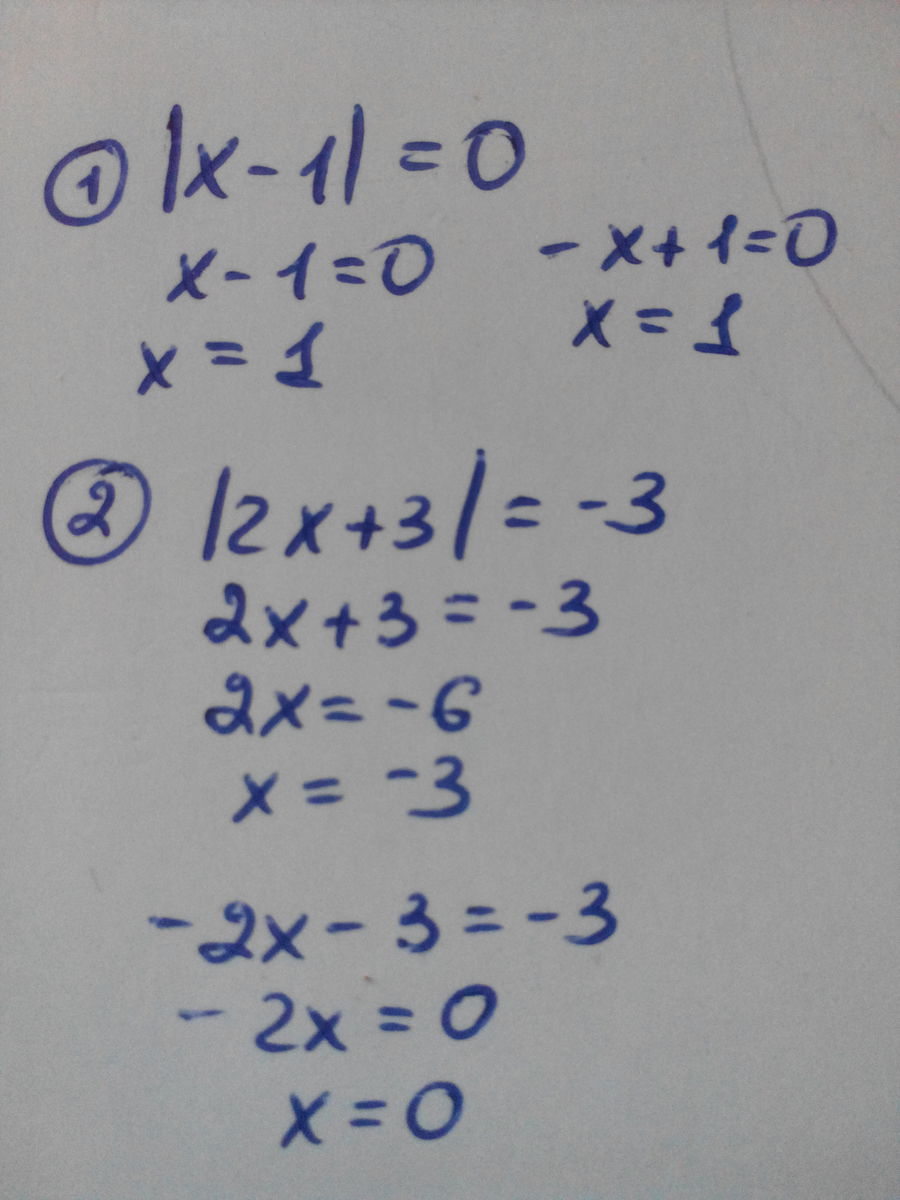 ① |x-1| = 0
x-1=0    -x+1=0
x = 1    x = 1
② |2x+3| = -3
2x+3 = -3
2x = -6
x = -3
-2x-3 = -3
-2x = 0
x = 0